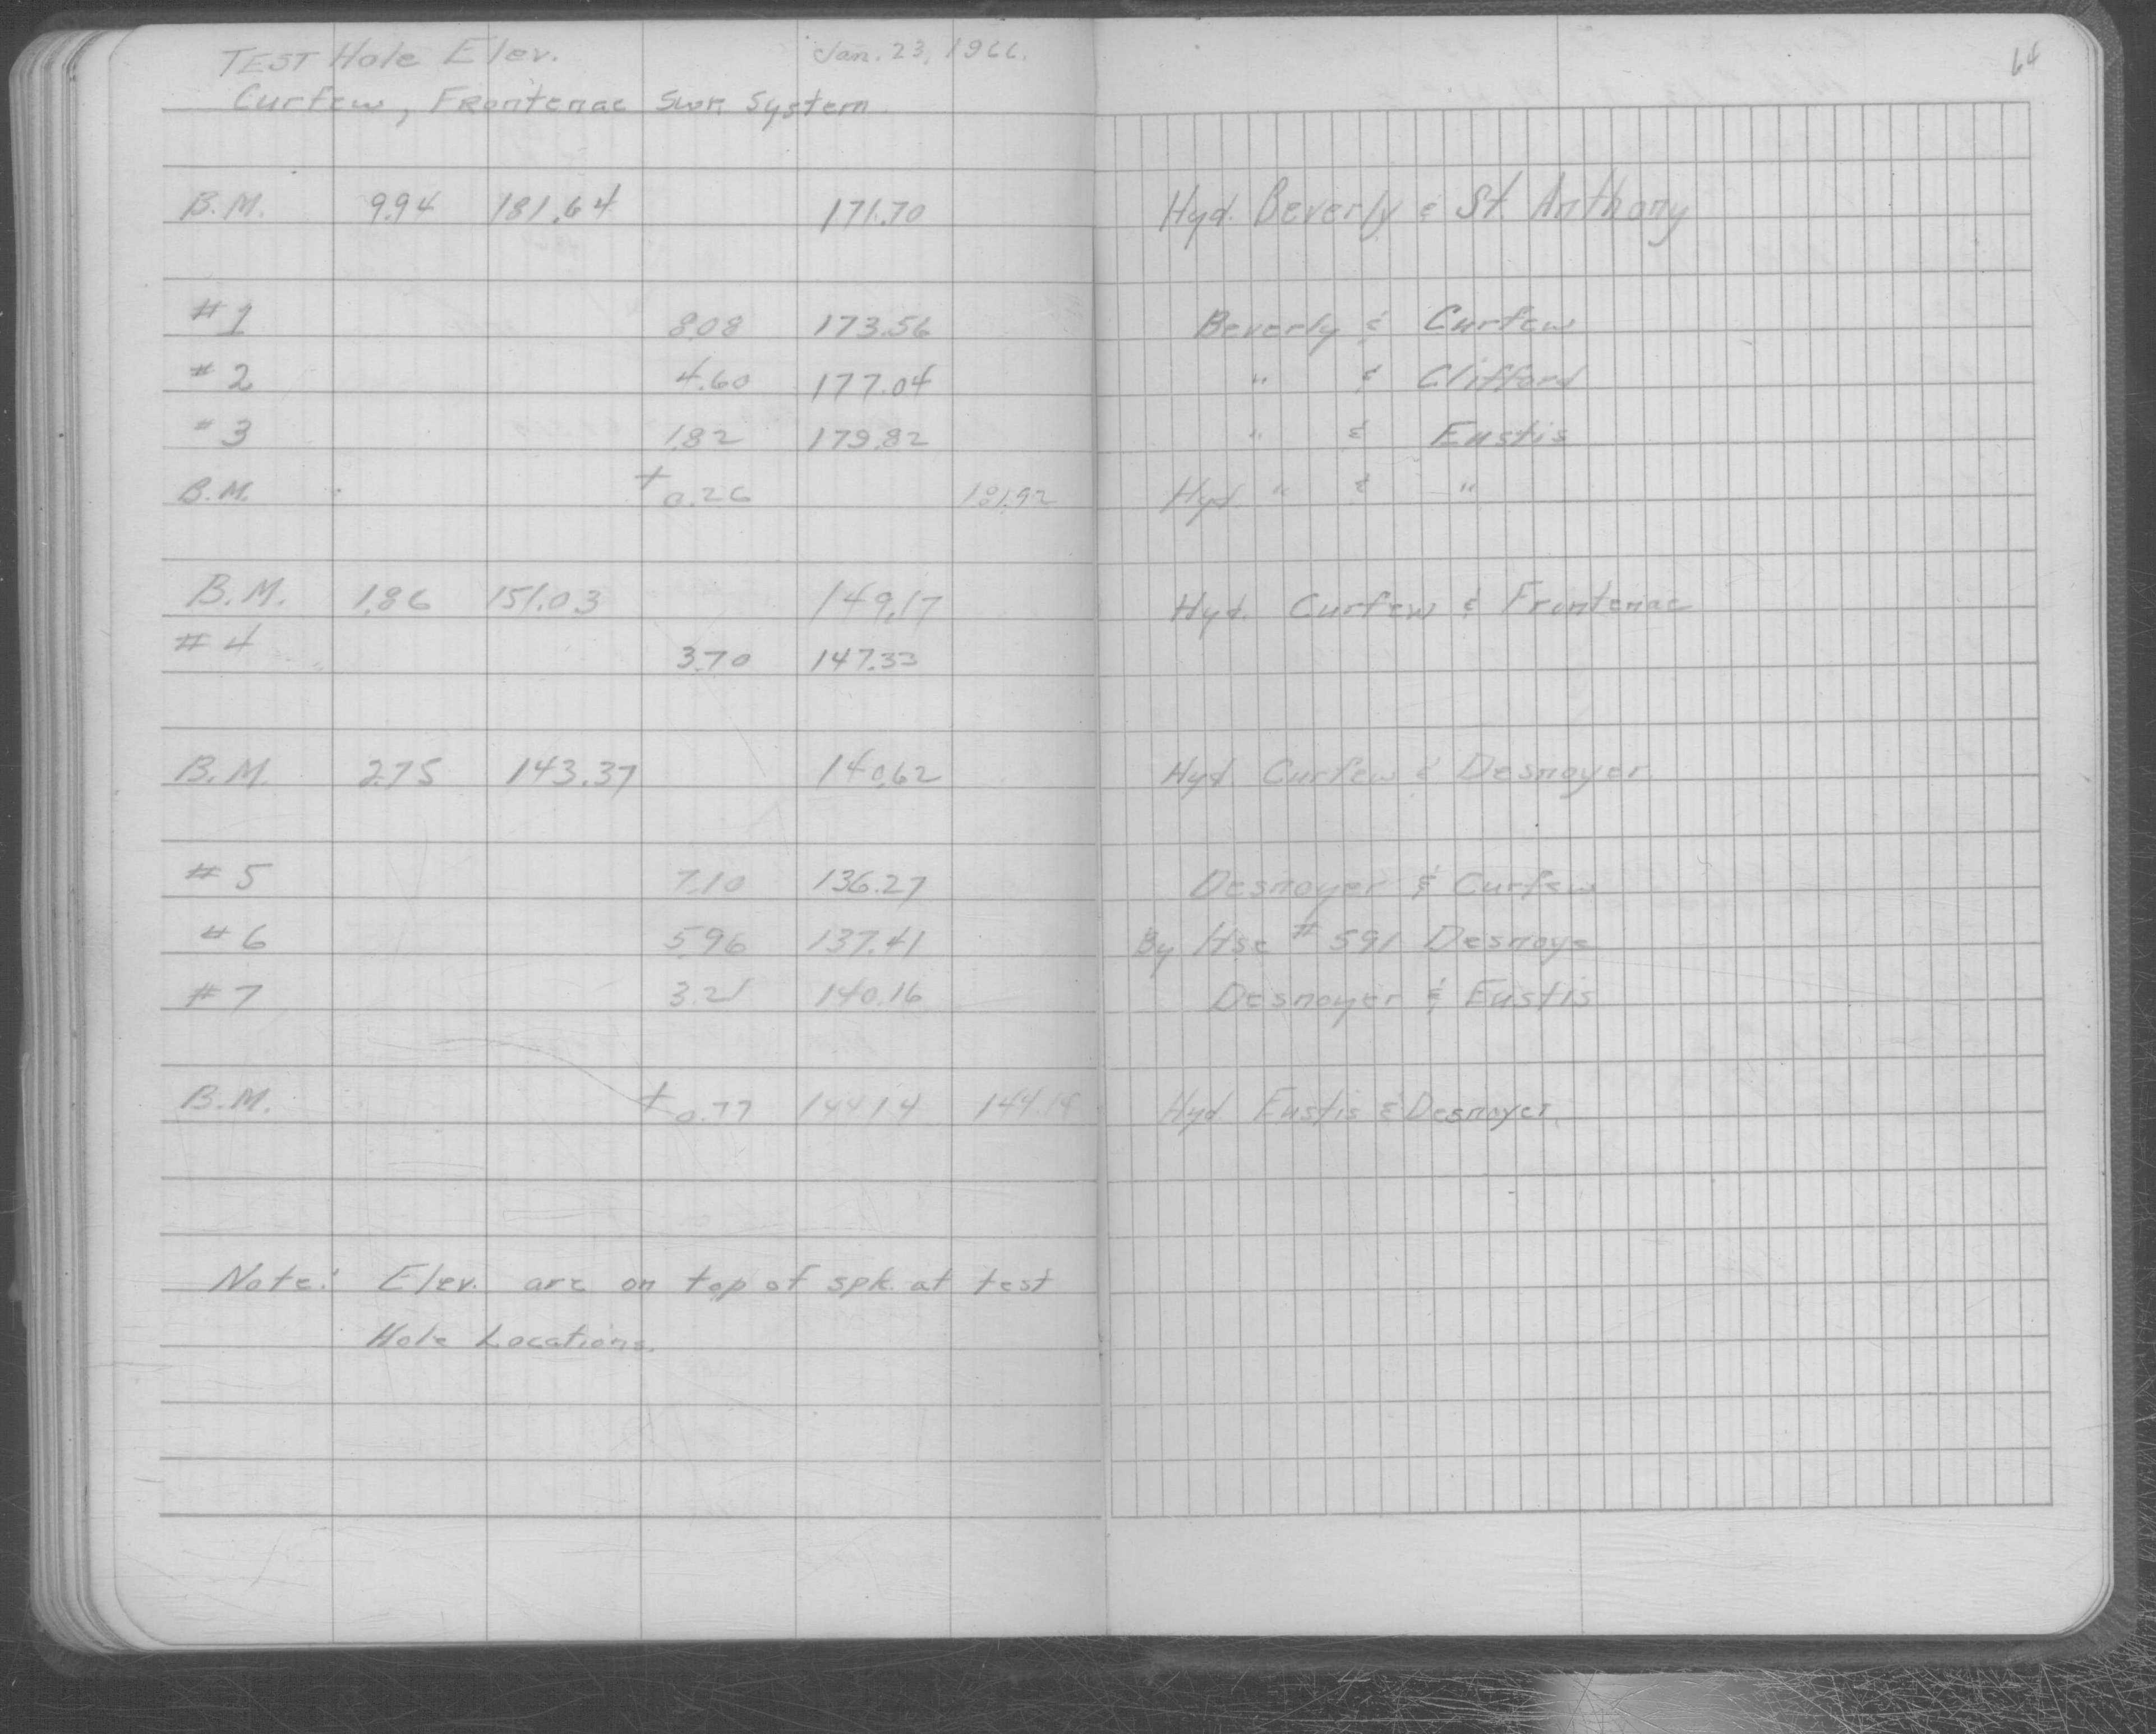 TEST Hole Elev. Jan. 23, 1966. 64
Curfew, Frontenac Swr System
B.M. 9.94 181.64 171.70 Hyd. Beverly & St. Anthony
#1 8.08 173.56 Beverly & Curfew
#2 4.60 177.04 " & Clifford
#3 1.82 179.82 " & Eustis
B.M. +0.26 181.92 Hyd. " & "
B.M. 1.86 151.03 149.17 Hyd. Curfew & Frontenac
#4 3.70 147.33
B.M. 2.75 143.37 140.62 Hyd. Curfew & Desnoyer
#5 7.10 136.27 Desnoyer & Curfew
#6 5.96 137.41 By Hse #591 Desnoye
#7 3.21 140.16 Desnoyer & Eustis
B.M. +0.77 144.14 144.14 Hyd Eustis & Desnoyer.
Note: Elev. are on top of spk. at test
Hole Locations.